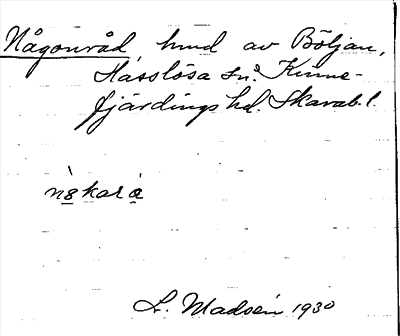 Någonråd, hund av Böljan,
Hasslösa sn. Kinne-
fjärdings hd. Skarab. l.
n8kara
L. Madsén 1930